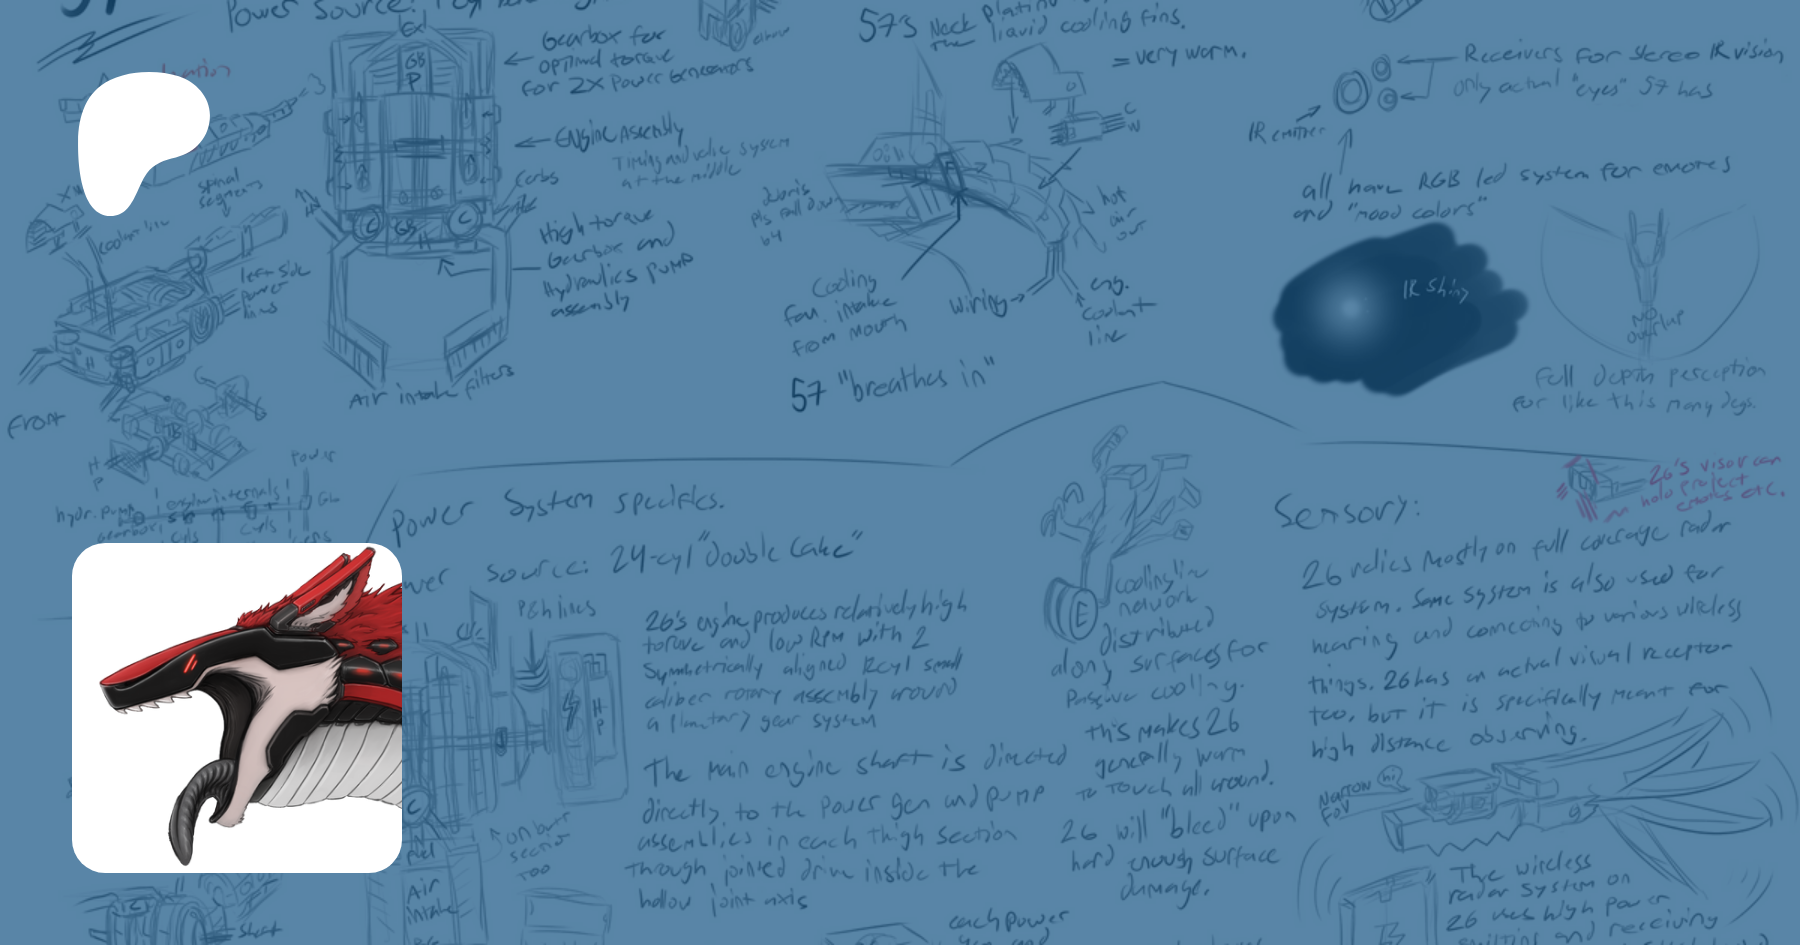 57
Power Source:
Ex
GB
P
Gearbox for
optimal torque
for 2x Power Generators
Engine Assembly
Timing and valve system
at the middle
Carbs
High torque
Gearbox and
Hydraulics pump
assembly
C
GB
H
C
Air intake filters
spinal
segments
coolant line
left side
power
lines
Front
H
P
power
hydr. pump
engine internals
Gen
gearbox
cyls
cyls
57's Neck plating
The liquid cooling fins.
= very warm.
C
W
debris
pls fall down
hot
air
out
Cooling
fan. intake
from mouth
wiring
eng.
coolant
line
57 "breathes in"
Receivers for stereo IR vision
only actual "eyes" 57 has
IR emitter
all have RGB led system for emotes
and "mood colors"
IR shiny
NO
overlap
Full depth perception
for like this many degs.
26's visor can
holo project
emotes etc.
Power System specifics.
Power source: 24-cyl "double cake"
P&H lines
H
P
26's engine produces relatively high
torque and low RPM with 2
Symmetrically aligned 12cyl small
caliber rotary assembly around
a planetary gear system
The main engine shaft is directed
directly to the power gen and pump
assemblies in each thigh section
through jointed drive inside the
hollow joint axis
C
fuel
Air
intake
on butt
section
too
Shaft
each power
E
cooling line
network
distributed
along surfaces for
Passive cooling.
this makes 26
generally warm
to touch all around.
26 will "bleed" upon
hard enough surface
damage.
Sensory:
26 relies mostly on full coverage radar
system. Same system is also used for
hearing and connecting to various wireless
things. 26 has an actual visual receptor
too, but it is specifically meant for
high distance observing.
Narrow
FOV
hi
The wireless
radar system on
26 uses high power
emitting and receiving